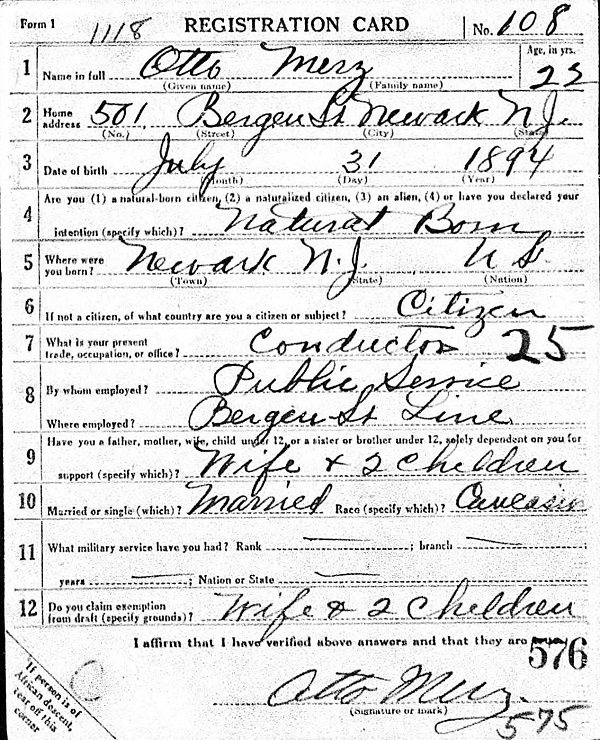 Form 1 1118 REGISTRATION CARD No. 108
1 Name in full Otto Merz Age, in yrs. 22
(Given name) (Family name)
2 Home address 501 Bergen St Newark N.J.
(No.) (Street) (City) (State)
3 Date of birth July 31 1894
(Month) (Day) (Year)
4 Are you (1) a natural-born citizen, (2) a naturalized citizen, (3) an alien, (4) or have you declared your
intention (specify which)? Natural Born
5 Where were you born? Newark N.J. U S.
(Town) (State) (Nation)
6 If not a citizen, of what country are you a citizen or subject? Citizen
7 What is your present trade, occupation, or office? Conductor 25
8 By whom employed? Public Service
Where employed? Bergen St Line
9 Have you a father, mother, wife, child under 12, or a sister or brother under 12, solely dependent on you for
support (specify which)? Wife & 2 children
10 Married or single (which)? Married Race (specify which)? Caucasin
11 What military service have you had? Rank ; branch
years ; Nation or State
12 Do you claim exemption from draft (specify grounds)? Wife & 2 children
I affirm that I have verified above answers and that they are
576
Otto Merz.
(Signature or mark)
575
If person is of
African descent,
tear off this
corner